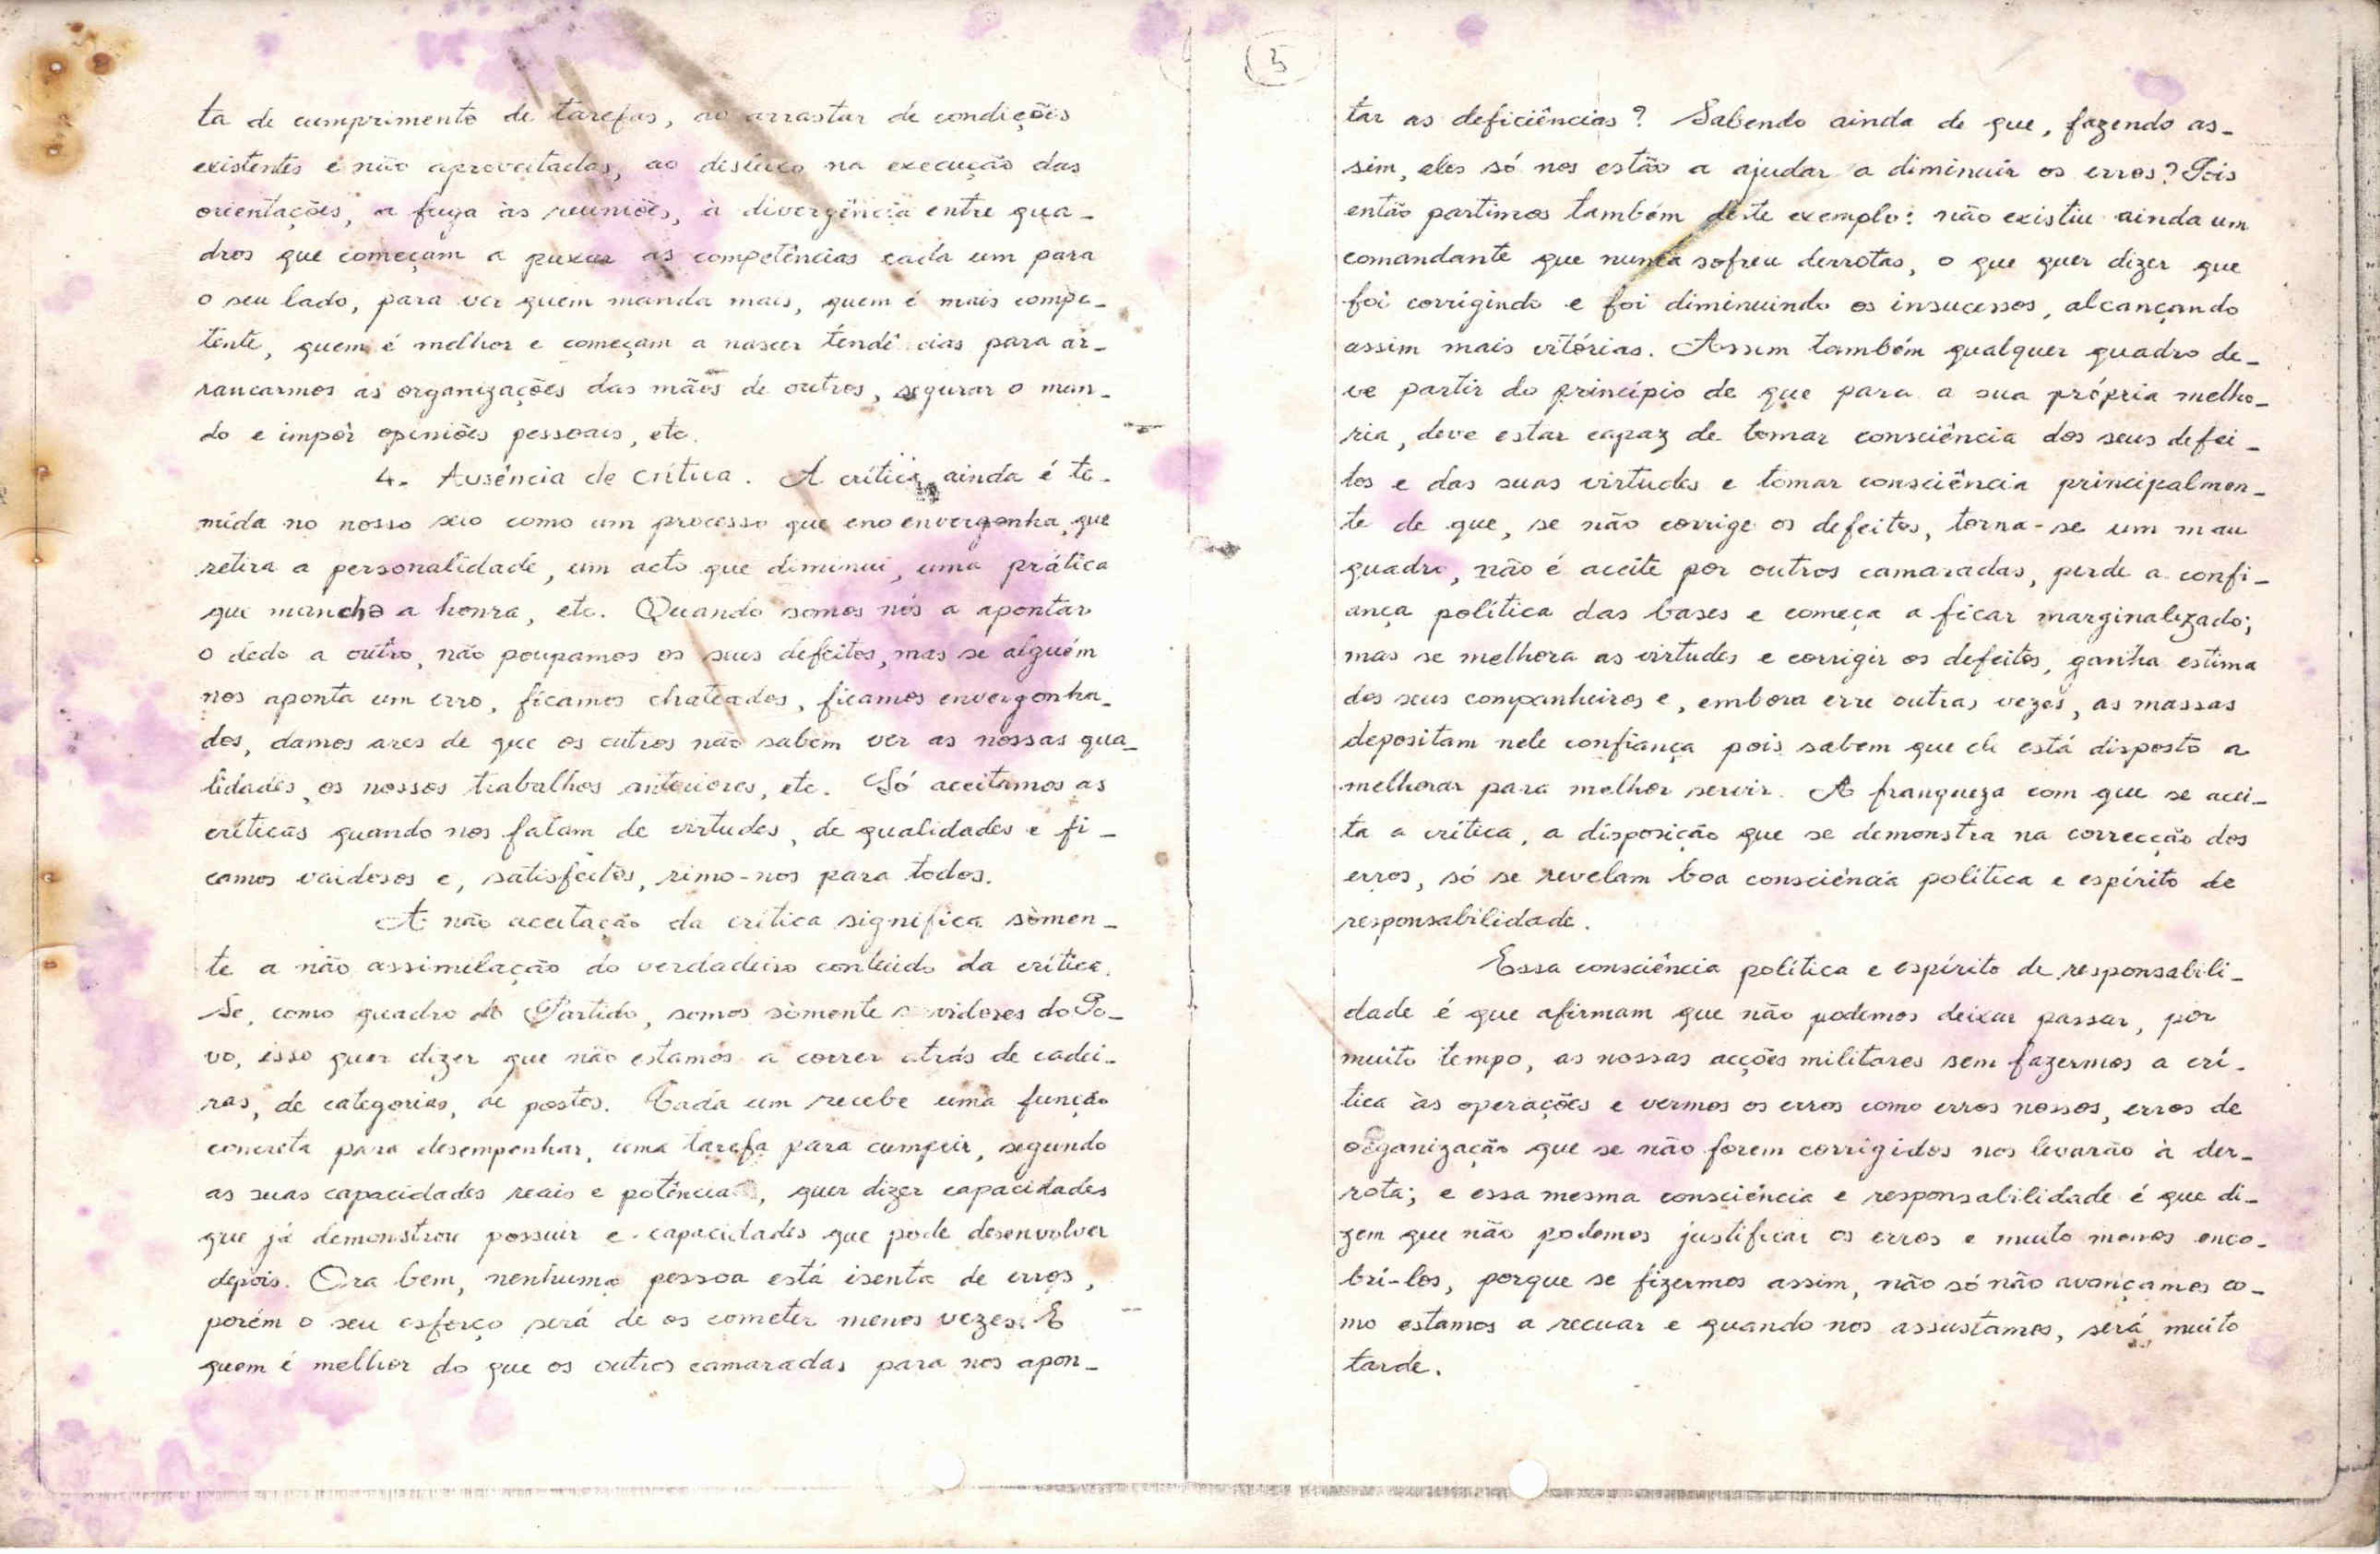 ta de cumprimento de tarefas, ao arrastar de condições
existentes e não aproveitadas, ao desleixo na execução das
orientações, a fuga às reuniões, à divergência entre qua-
dros que começam a puxar as competências cada um para
o seu lado, para ver quem manda mais, quem é mais compe-
tente, quem é melhor e começam a nascer tendências para ar-
rancarmos as organizações das mãos de outros, segurar o man-
do e impôr opiniões pessoais, etc.
4. Ausência de crítica. A crítica ainda é te-
mida no nosso seio como um processo que envergonha, que
retira a personalidade, um acto que diminui, uma prática
que mancha a honra, etc. Quando somos nós a apontar
o dedo a outro, não poupamos os seus defeitos, mas se alguém
nos aponta um erro, ficamos chateados, ficamos envergonha-
dos, damos ares de que os outros não sabem ver as nossas qua-
lidades, os nossos trabalhos anteriores, etc. Só aceitamos as
críticas quando nos falam de virtudes, de qualidades e fi-
camos vaidosos e, satisfeitos, rimo-nos para todos.
A não aceitação da crítica significa sòmen-
te a não assimilação do verdadeiro conteúdo da crítica.
Se, como quadro do Partido, somos sòmente servidores do Po-
vo, isso quer dizer que não estamos a correr atrás de cadei-
ras, de categorias, de postos. Cada um recebe uma função
concreta para desempenhar, uma tarefa para cumprir, segundo
as suas capacidades reais e potência, quer dizer capacidades
que já demonstrou possuir e capacidades que pode desenvolver
depois. Ora bem, nenhuma pessoa está isenta de erros,
porém o seu esforço será de os cometer menos vezes. E
quem é melhor do que os outros camaradas para nos apon-
5
tar as deficiências? Sabendo ainda de que, fazendo as-
sim, eles só nos estão a ajudar a diminuir os erros? Pois
então partimos também deste exemplo: não existiu ainda um
comandante que nunca sofreu derrotas, o que quer dizer que
foi corrigindo e foi diminuindo os insucessos, alcançando
assim mais vitórias. Assim também qualquer quadro de-
ve partir do princípio de que para a sua própria melho-
ria, deve estar capaz de tomar consciência dos seus defei-
tos e das suas virtudes e tomar consciência principalmen-
te de que, se não corrige os defeitos, torna-se um mau
quadro, não é aceite por outros camaradas, perde a confi-
ança política das bases e começa a ficar marginalizado;
mas se melhora as virtudes e corrigir os defeitos, ganha estima
dos seus companheiros e, embora erre outras vezes, as massas
depositam nele confiança pois sabem que ele está disposto a
melhorar para melhor servir. A franqueza com que se acei-
ta a crítica, a disposição que se demonstra na correcção dos
erros, só se revelam boa consciência política e espírito de
responsabilidade.
Essa consciência política e espírito de responsabili-
dade é que afirmam que não podemos deixar passar, por
muito tempo, as nossas acções militares sem fazermos a crí-
tica às operações e vermos os erros como erros nossos, erros de
organização que se não forem corrigidos nos levarão à der-
rota; e essa mesma consciência e responsabilidade é que di-
zem que não podemos justificar os erros e muito menos enco-
brí-los, porque se fizermos assim, não só não avançamos co-
mo estamos a recuar e quando nos assustamos, será muito
tarde.